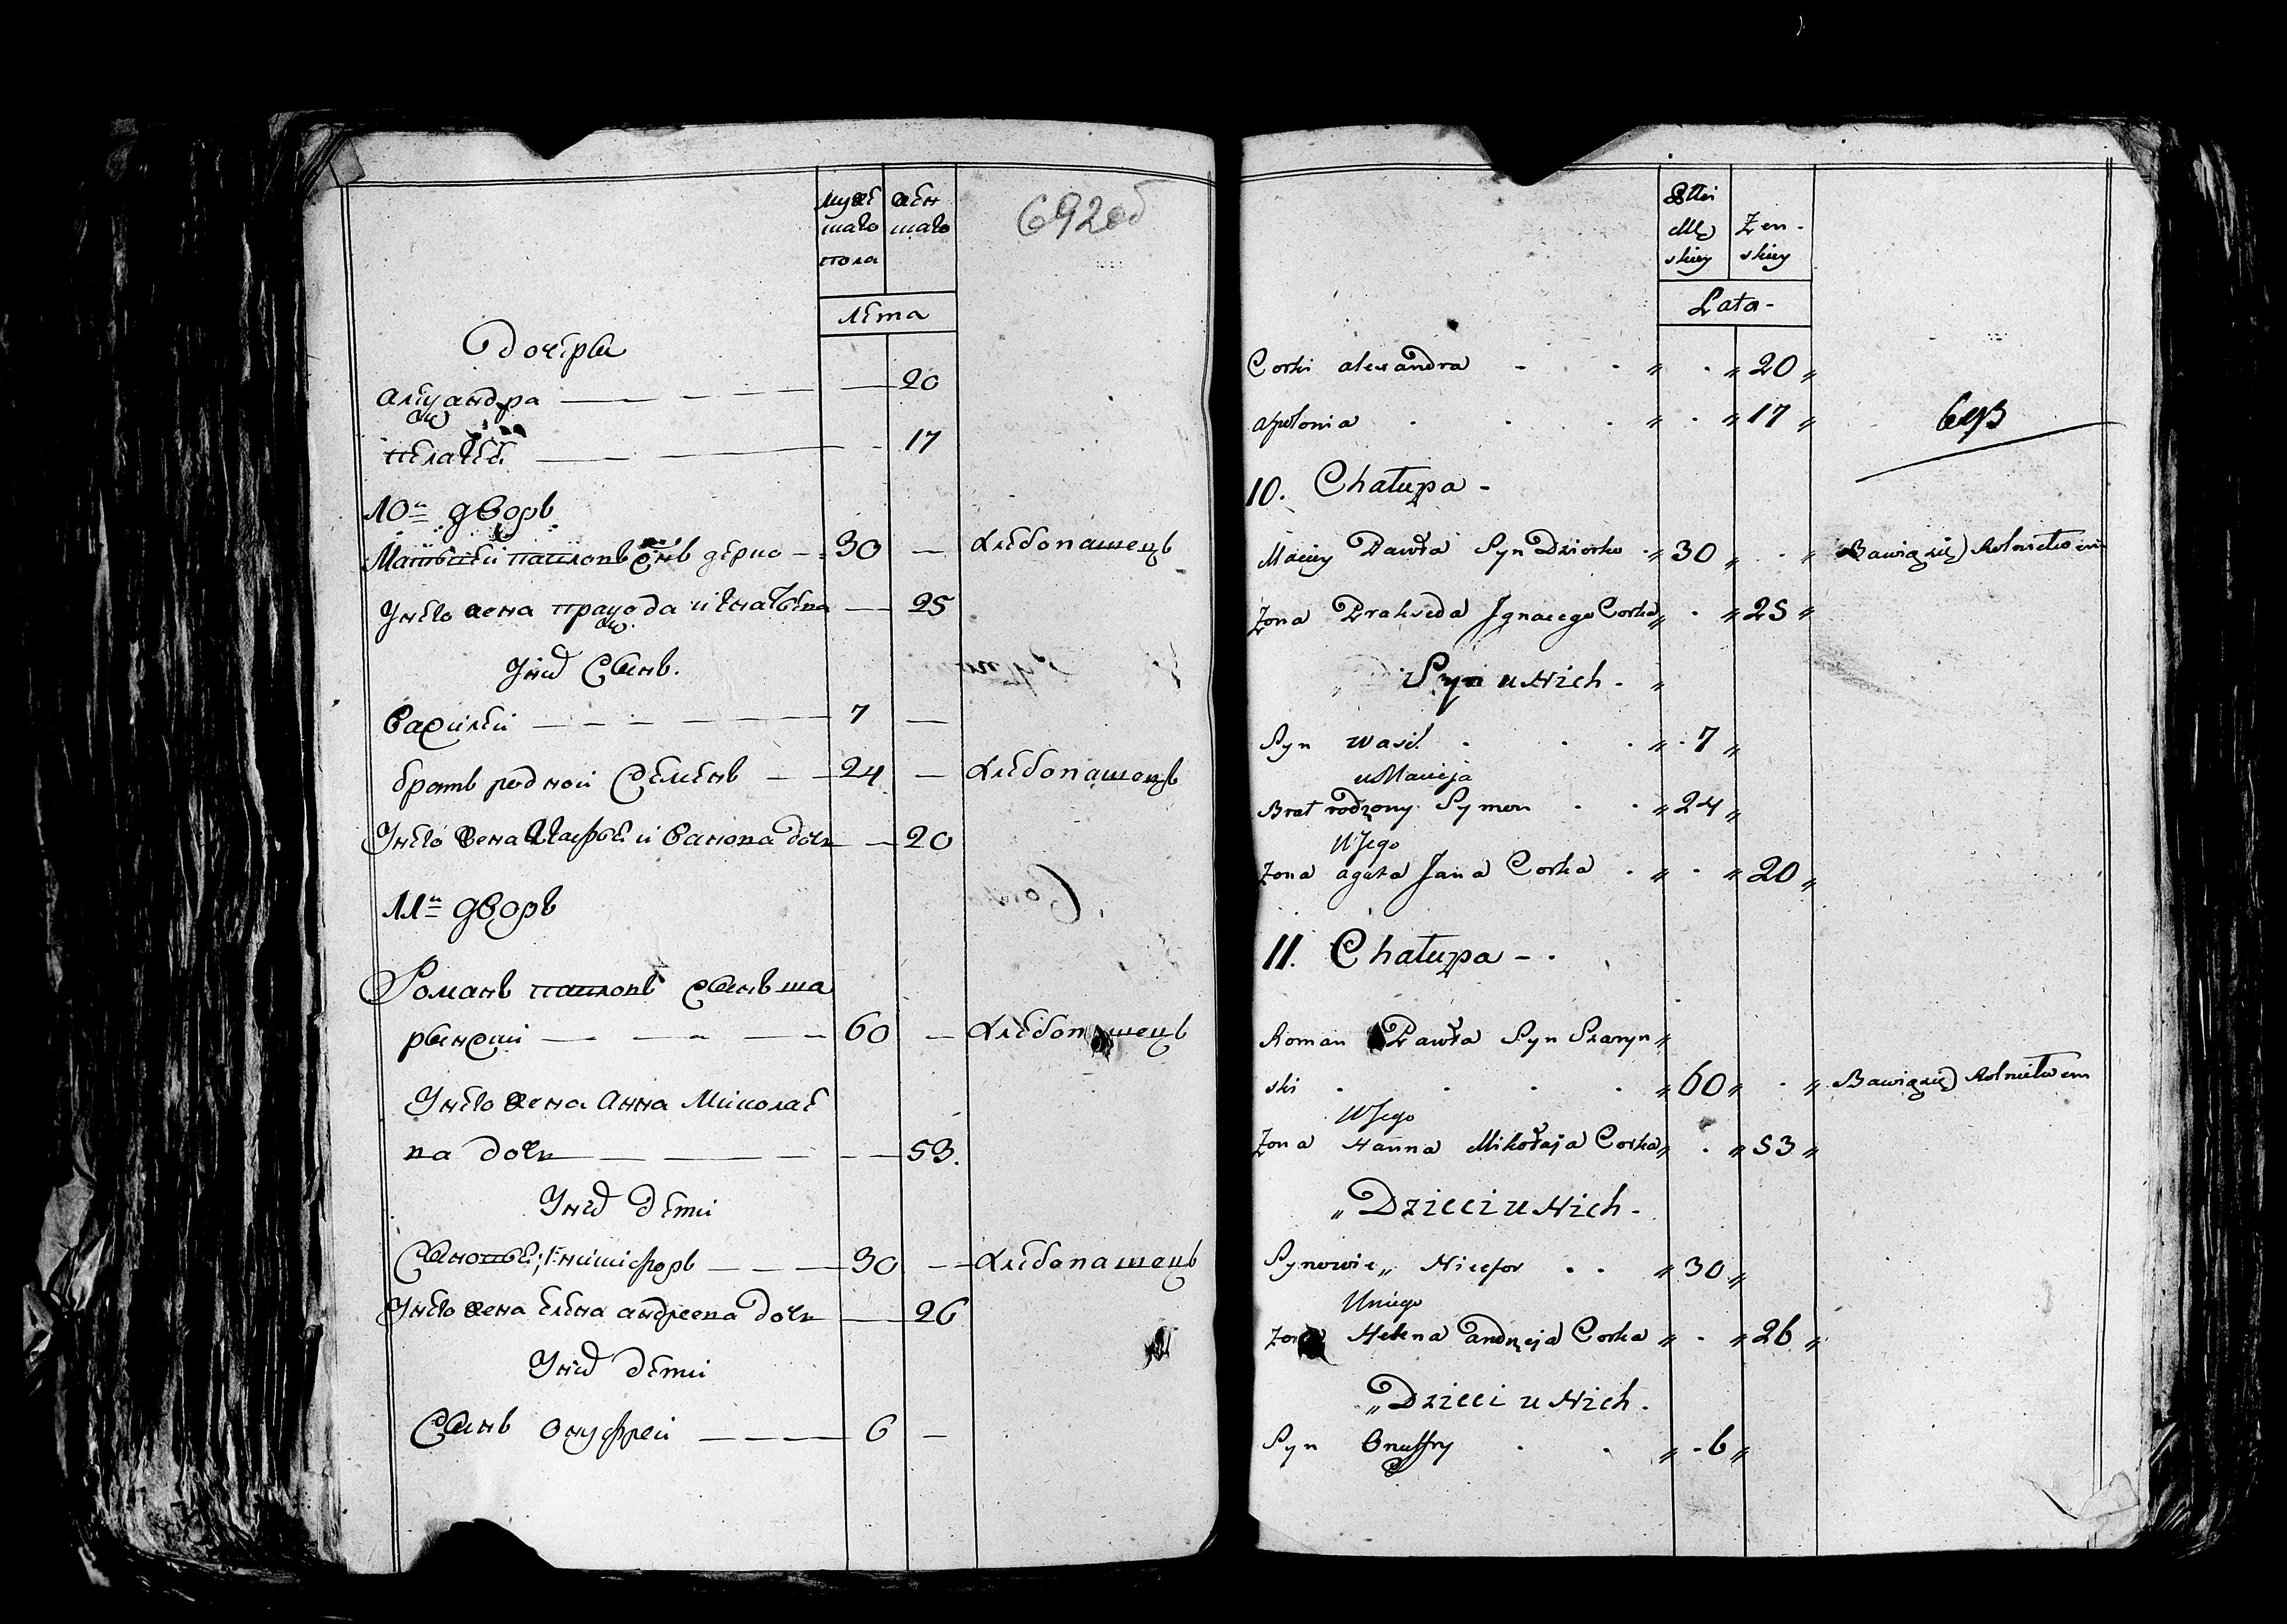 692об
муже жен
скаго скаго
пола
лета
Дочеры
Алеуандра — — — — 20
пелагеи — — — 17
10й дворъ
Матвеей павловъ снъ дерко — 30 — хлебопашецъ
Унего жена працеда игнатьева — 25
Уних Сынъ.
Василей — — — — 7 —
братъ родной Семенъ — — 24 — хлебопашецъ
Унего жена Агафьи иванова дочь — 20
11й дворъ
Романъ павловъ сынъ ша
рынски — — — — 60 — хлебопашецъ
Унего жена Анна Миколае
ва дочь — — — — 53.
Уних дети
Сыновьеи; 1. никифоръ — — — 30 — хлебопашецъ
Унего жена Елена андреева дочь — 26
Уних дети
Сынъ Онуфреи — — — 6 —
Płci
Mę Zen-
skiey skiey
Lata-
Corki alexandra - . . „ . „ 20 „
apolonia . . . „ . „ 17 „
693
10. Chałupa -
Maciey Pawła Syn Dziorko . „ 30 „ . „ Bawiąsię Rolnictwem
Zona Prakseda Jgnacego Corka „ . „ 25 „
Syn u Nich - „
Syn wasil . . . „ . 7 „
u Macieja
Brat rodzony Symon . . „ 24 „
U Jego
Zona agata Jana Corka . „ . „ 20 „
11. Chałupa - .
Roman Pawła Syn Szaryn „
ski . . . . „ 60 „ . „ Bawiąsię Rolnictwem
U Jego
Zona Hanna Mikołaja Corka „ . „ 53 „
„ Dzieci u Nich -
Synowie „ Nicefor . . „ 30 „
Uniego
Zona Helena andrzeja Corka „ . „ 26 „
„ Dzieci u Nich .
Syn Onuffry . . „ . 6 „